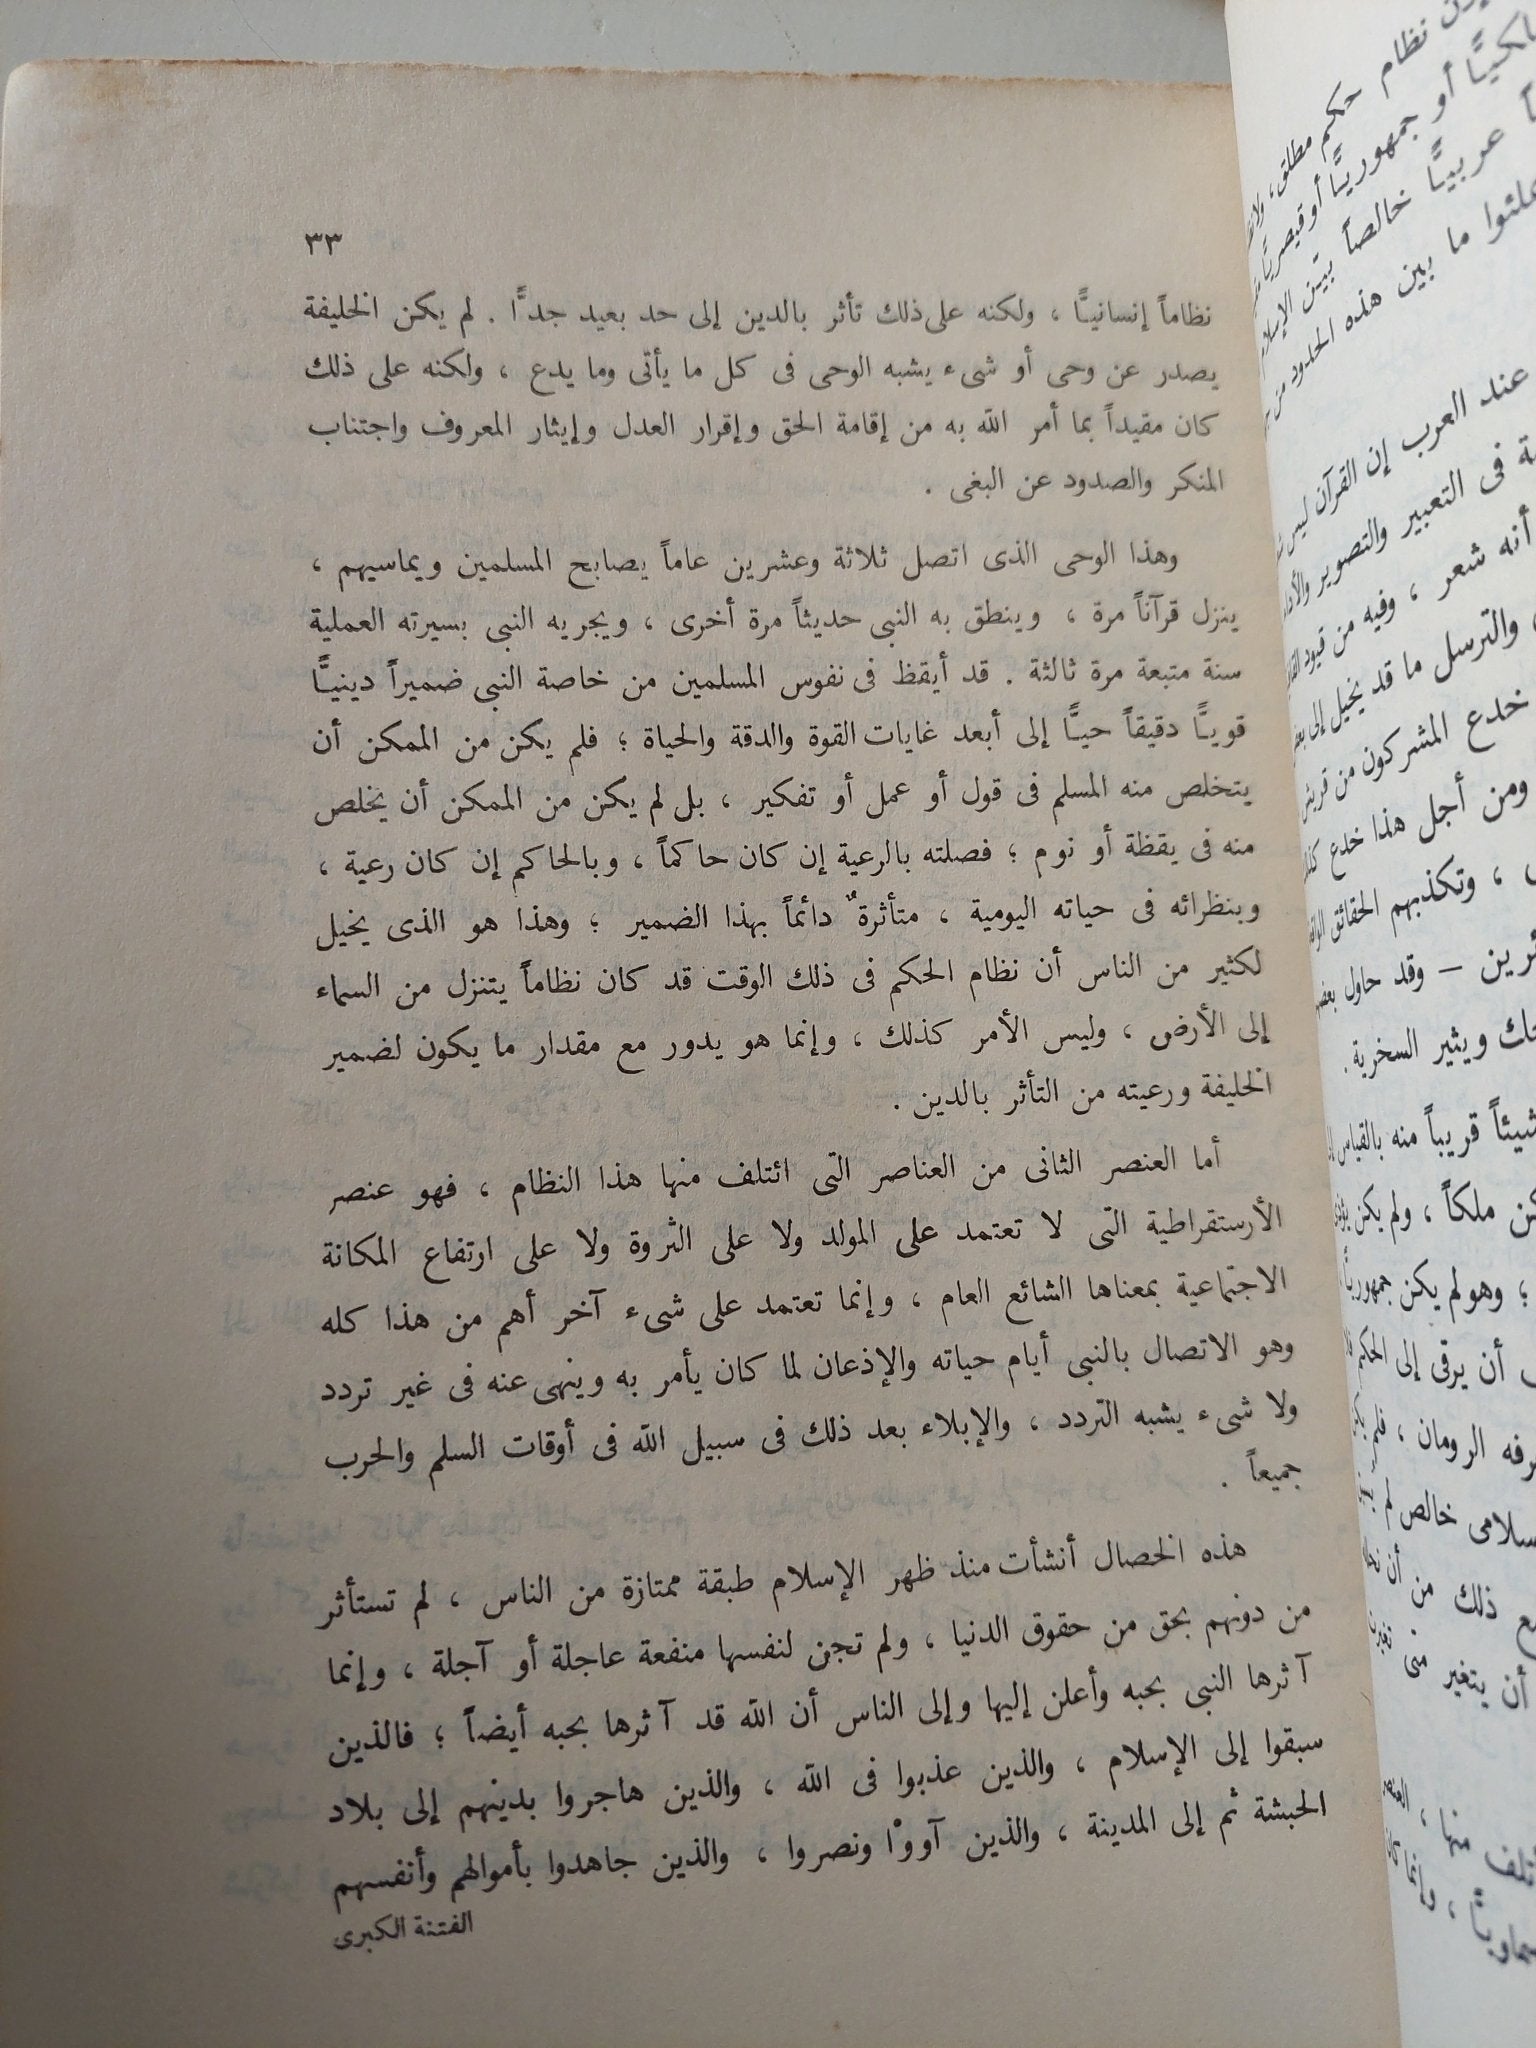 ٣٣
نظاماً إنسانيًّا ، ولكنه على ذلك تأثر بالدين إلى حد بعيد جدًّا . لم يكن الخليفة
يصدر عن وحى أو شىء يشبه الوحى فى كل ما يأتى وما يدع ، ولكنه على ذلك
كان مقيداً بما أمر الله به من إقامة الحق وإقرار العدل وإيثار المعروف واجتناب
المنكر والصدود عن البغى .
وهذا الوحى الذى اتصل ثلاثة وعشرين عاماً يصابح المسلمين ويماسيهم ،
ينزل قرآناً مرة ، وينطق به النبى حديثاً مرة أخرى ، ويجريه النبى بسيرته العملية
سنة متبعة مرة ثالثة . قد أيقظ فى نفوس المسلمين من خاصة النبى ضميراً دينيًّا
قويًّا دقيقاً حيًّا إلى أبعد غايات القوة والدقة والحياة ؛ فلم يكن من الممكن أن
يتخلص منه المسلم فى قول أو عمل أو تفكير ، بل لم يكن من الممكن أن يخلص
منه فى يقظة أو نوم ؛ فصلته بالرعية إن كان حاكماً ، وبالحاكم إن كان رعية ،
وبنظرائه فى حياته اليومية ، متأثرةٌ دائماً بهذا الضمير ؛ وهذا هو الذى يخيل
لكثير من الناس أن نظام الحكم فى ذلك الوقت قد كان نظاماً يتنزل من السماء
إلى الأرض ، وليس الأمر كذلك ، وإنما هو يدور مع مقدار ما يكون لضمير
الخليفة ورعيته من التأثر بالدين .
أما العنصر الثانى من العناصر التى ائتلف منها هذا النظام ، فهو عنصر
الأرستقراطية التى لا تعتمد على المولد ولا على الثروة ولا على ارتفاع المكانة
الاجتماعية بمعناها الشائع العام ، وإنما تعتمد على شىء آخر أهم من هذا كله
وهو الاتصال بالنبى أيام حياته والإذعان لما كان يأمر به وينهى عنه فى غير تردد
ولا شىء يشبه التردد ، والإبلاء بعد ذلك فى سبيل الله فى أوقات السلم والحرب
جميعاً .
هذه الخصال أنشأت منذ ظهر الإسلام طبقة ممتازة من الناس ، لم تستأثر
من دونهم بحق من حقوق الدنيا ، ولم تجن لنفسها منفعة عاجلة أو آجلة ، وإنما
آثرها النبى بحبه وأعلن إليها وإلى الناس أن الله قد آثرها بحبه أيضاً ؛ فالذين
سبقوا إلى الإسلام ، والذين عذبوا فى الله ، والذين هاجروا بدينهم إلى بلاد
الحبشة ثم إلى المدينة ، والذين آووْا ونصروا ، والذين جاهدوا بأموالهم وأنفسهم
الفتنة الكبرى
نظام حكم مطلق،
أو جمهوريًّا أو قيصريًّا
عربيًّا خالصاً بيّن الإسلام
ما بين هذه الحدود من
عند العرب إن القرآن ليس
فى التعبير والتصوير
أنه شعر ، وفيه من قيود
والترسل ما قد يخيل إلى
خدع المشركون من قريش
ومن أجل هذا خدع
، وتكذبهم الحقائق
– وقد حاول
ويثير السخرية .
شيئاً قريباً منه بالقياس
ملكاً ، ولم يكن
؛ وهو لم يكن جمهوريًّا
أن يرقى إلى الحكم
الرومان ،
خالص لم
ذلك من أن
أن يتغير
منها ،
، وإنما